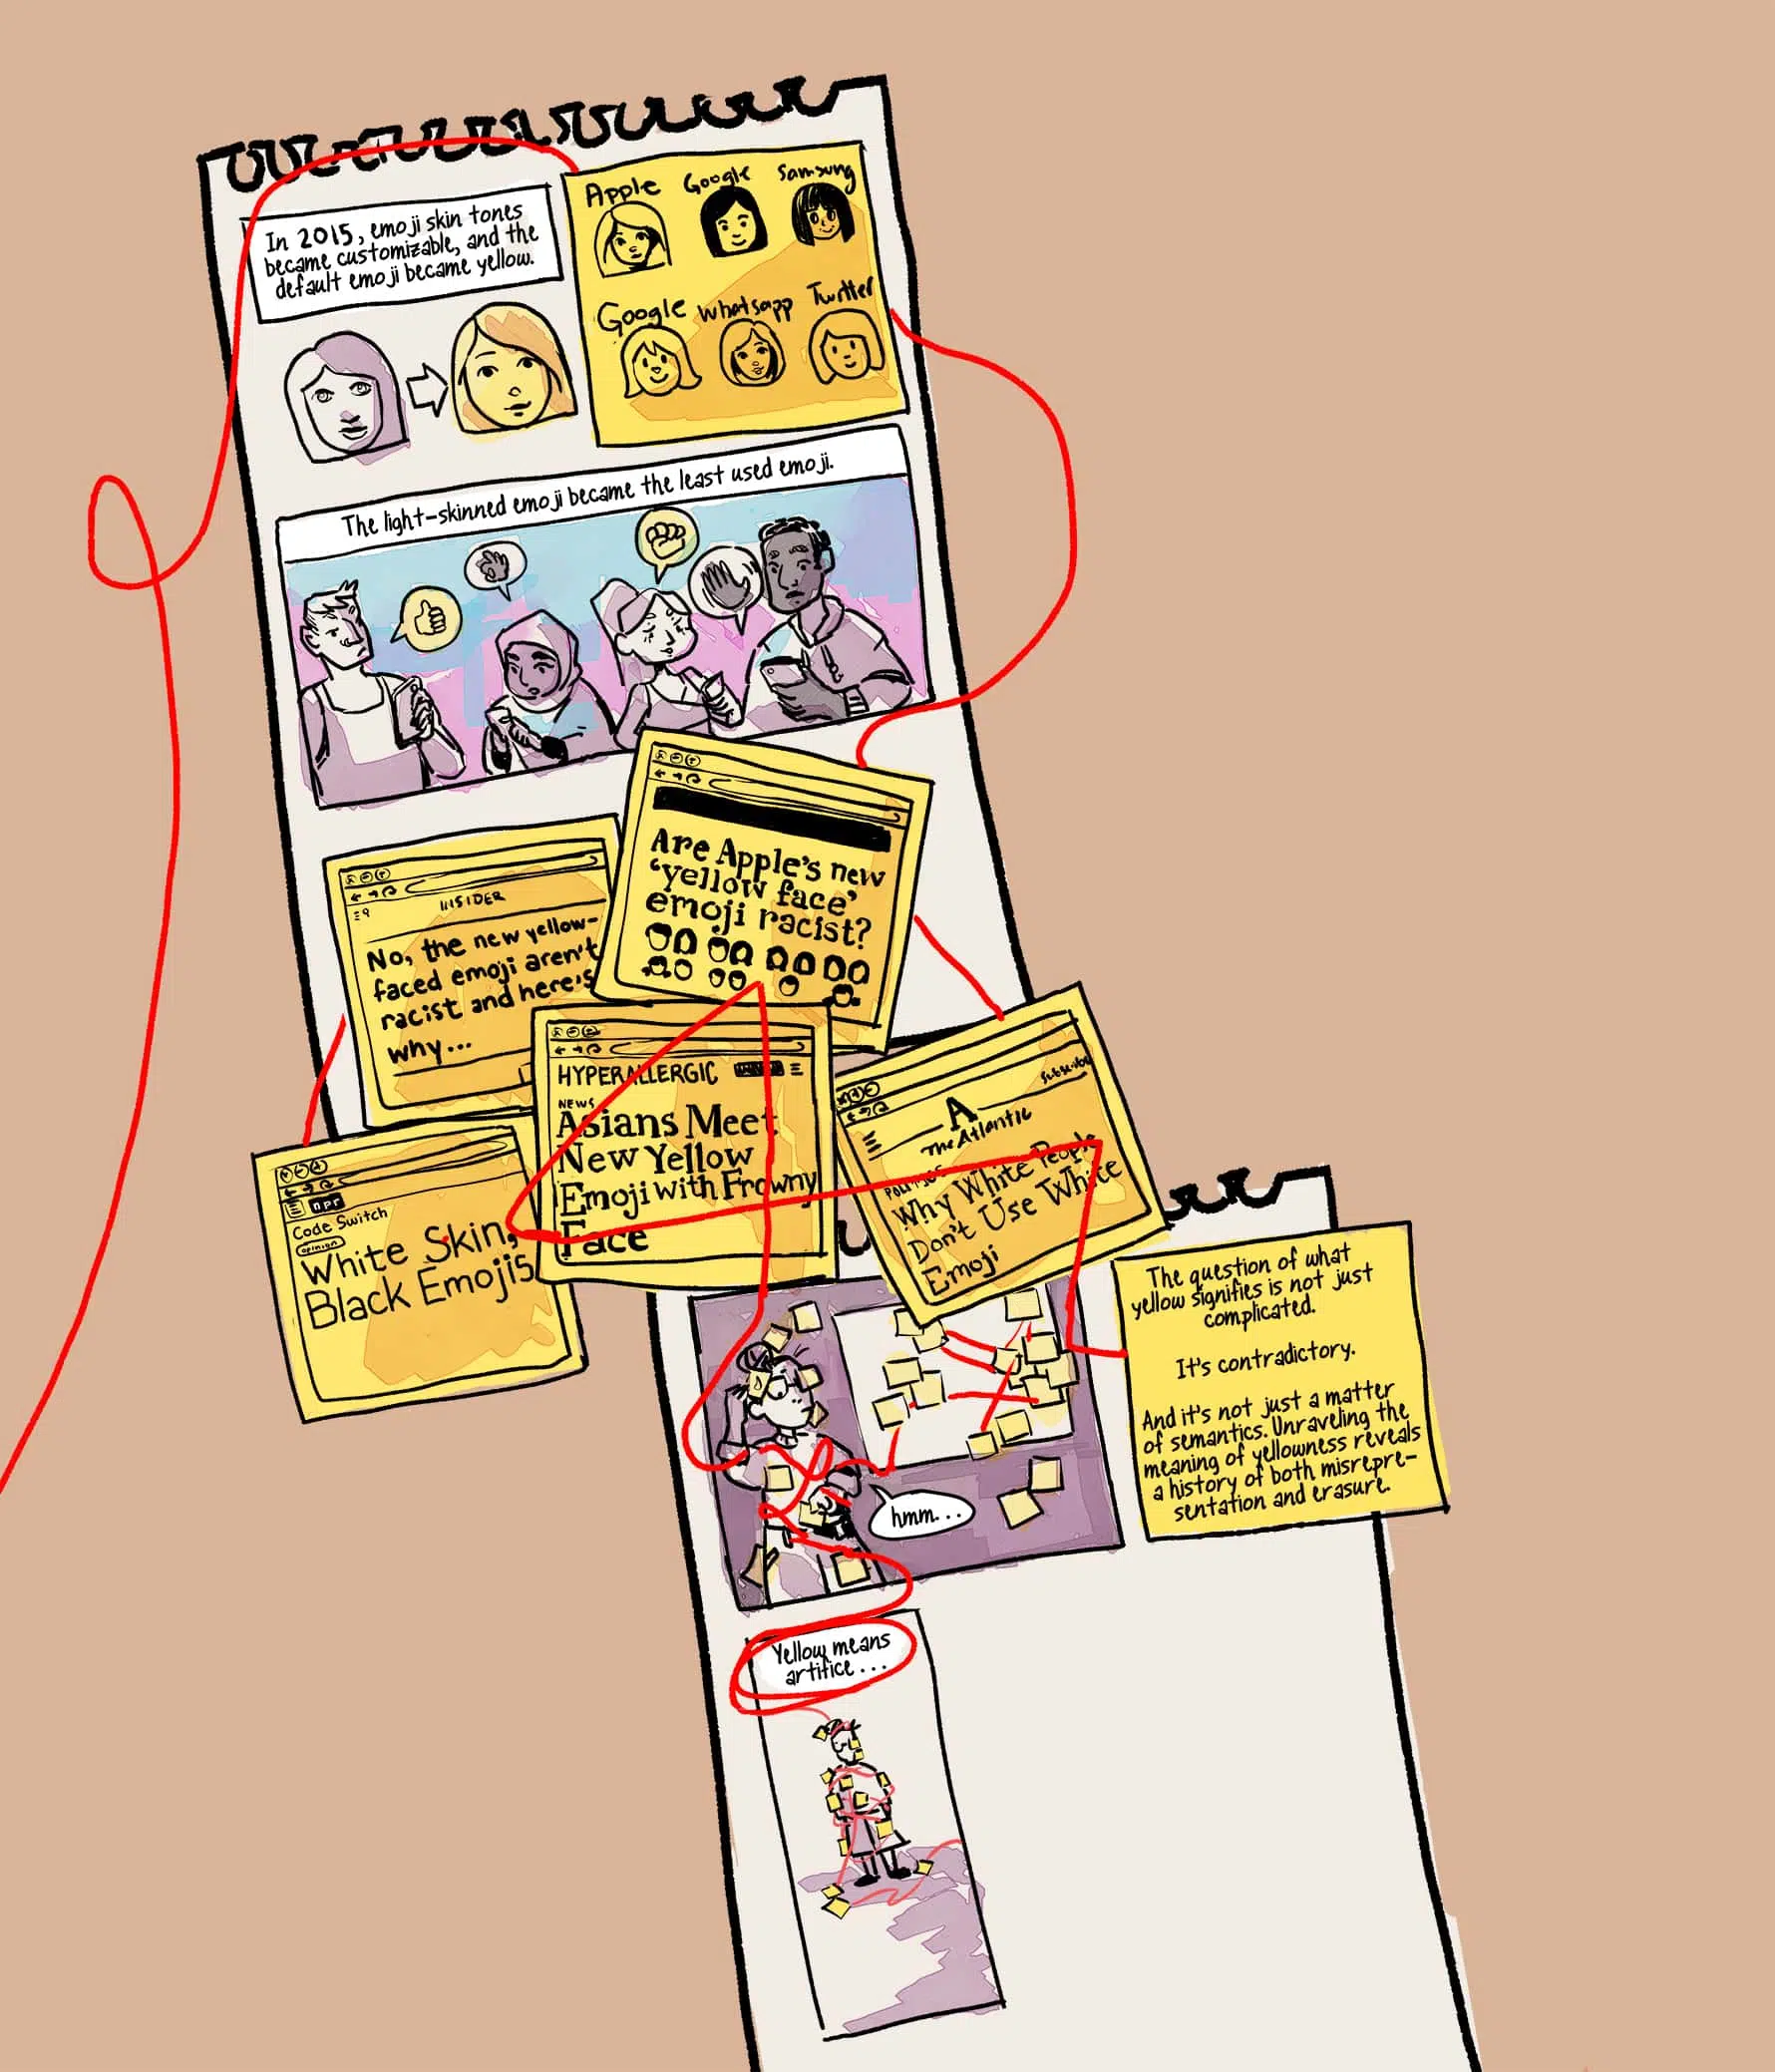 In 2015, emoji skin tones
became customizable, and the
default emoji became yellow.
Apple
Google
Samsung
Google
Whatsapp
Twitter
The light-skinned emoji became the least used emoji.
Are Apple's new
'yellow face'
emoji racist?
INSIDER
No, the new yellow-
faced emoji aren't
racist and here's
why...
HYPERALLERGIC
NEWS
Asians Meet
New Yellow
Emoji with Frowny
Face
Subscribe
A
The Atlantic
POLITICS
Why White People
Don't Use White
Emoji
npr
Code Switch
opinion
White Skin,
Black Emojis
The question of what
yellow signifies is not just
complicated.
It's contradictory.
And it's not just a matter
of semantics. Unraveling the
meaning of yellowness reveals
a history of both misrepre-
sentation and erasure.
hmm...
Yellow means
artifice...